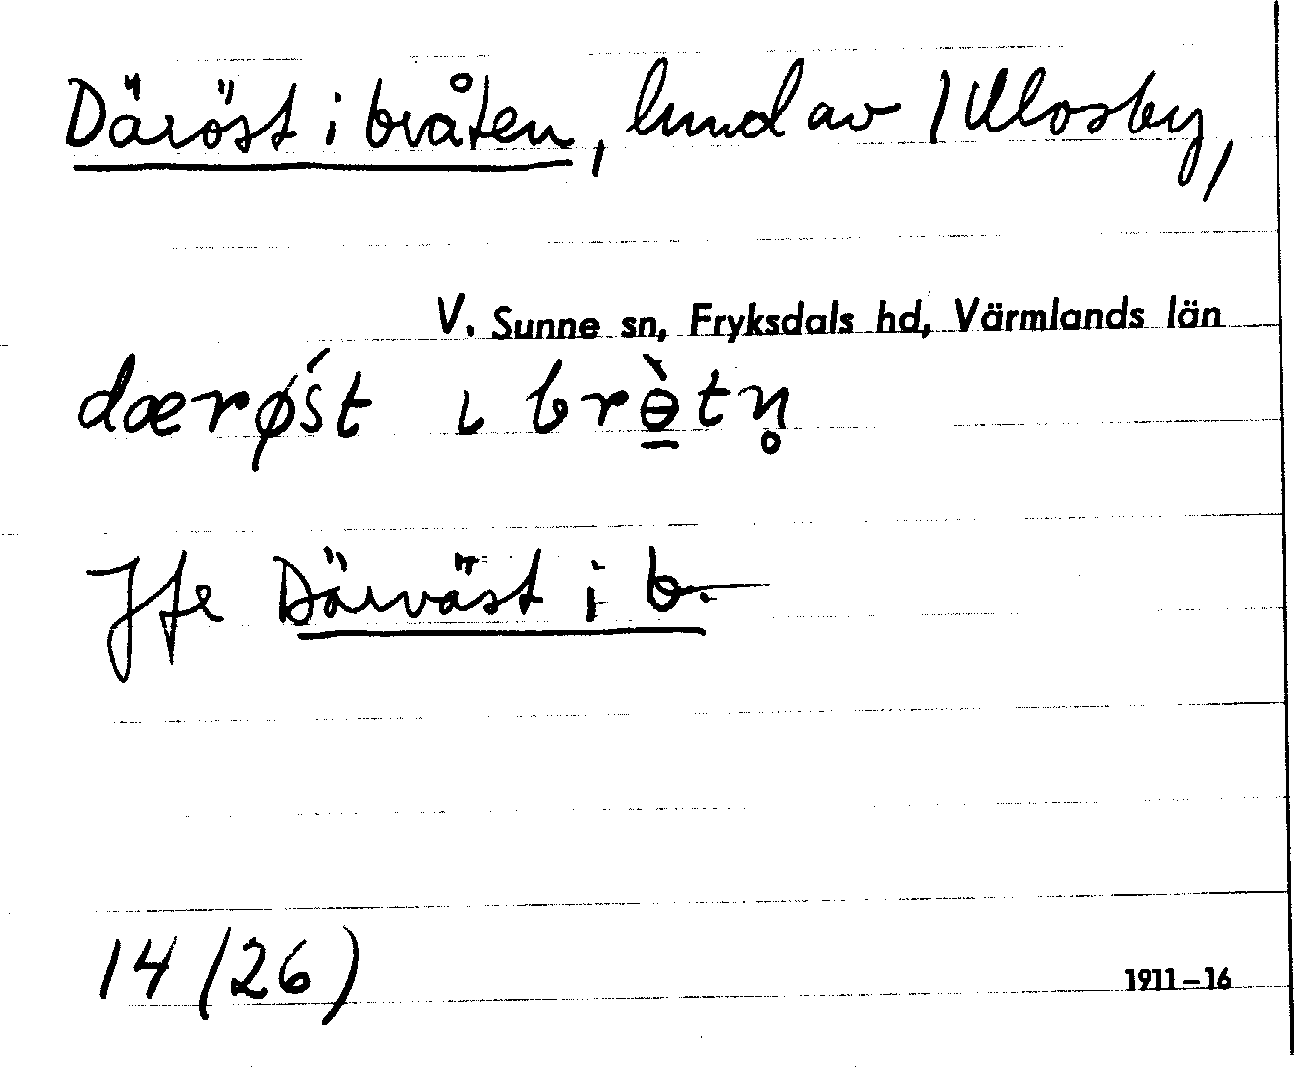 Däröst i bråten, hund av 1 Ulosby,
V. Sunne sn, Fryksdals hd, Värmlands län
dærǿśt ɩ brɵ̲̀tn̥
Jfr Därväst i b.
14 (26)
1911–16